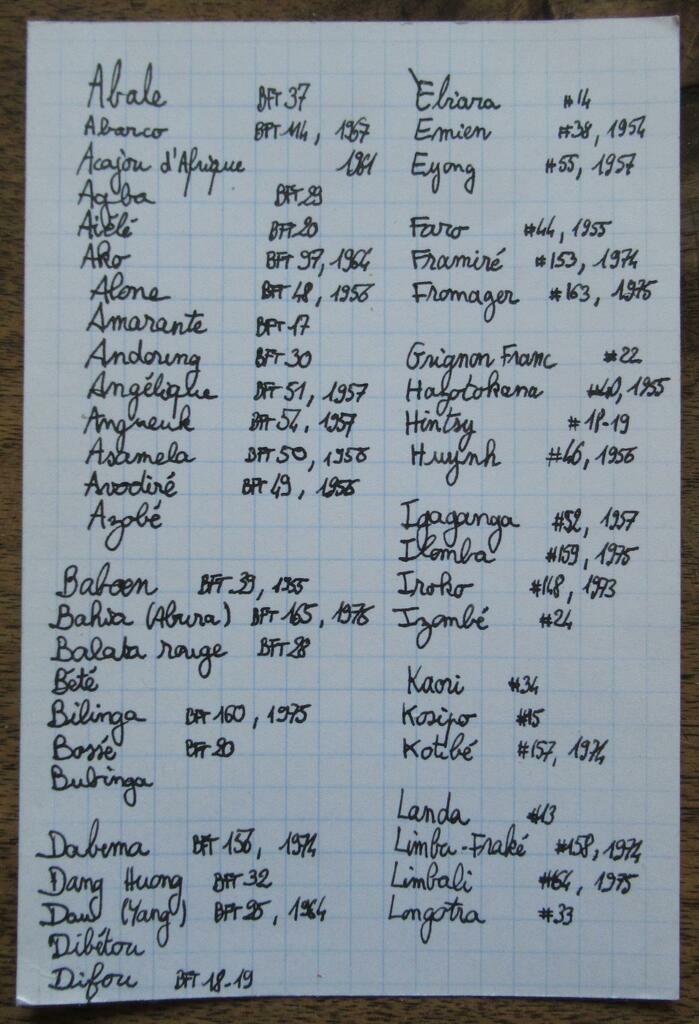 Abale BFT 37
Abarco BFT 114, 1967
Acajou d'Afrique 1961
Agba BFT 29
Aiélé BFT 20
Ako BFT 97, 1964
Alone BFT 48, 1956
Amarante BFT 17
Andoung BFT 30
Angélique BFT 51, 1957
Angueuk BFT 54, 1957
Asamela BFT 50, 1956
Avodiré BFT 49, 1956
Azobé
Baboen BFT 39, 1955
Bahia (Abura) BFT 165, 1976
Balata rouge BFT 28
Bété
Bilinga BFT 160, 1975
Bossé BFT 20
Bubinga
Dabema BFT 156, 1974
Dang Huong BFT 32
Dau (Yang) BFT 95, 1964
Dibétou
Difou BFT 18-19
Ebiara #14
Emien #38, 1954
Eyong #55, 1957
Faro #44, 1955
Framiré #153, 1974
Fromager #163, 1975
Grignon Franc #22
Hazotokana #40, 1955
Hintsy #18-19
Huynh #46, 1956
Igaganga #52, 1957
Ilomba #159, 1975
Iroko #148, 1973
Izombé #24
Kaori #34
Kosipo #15
Kotibé #157, 1974
Landa #13
Limba-Fraké #158, 1974
Limbali #164, 1975
Longotra #33